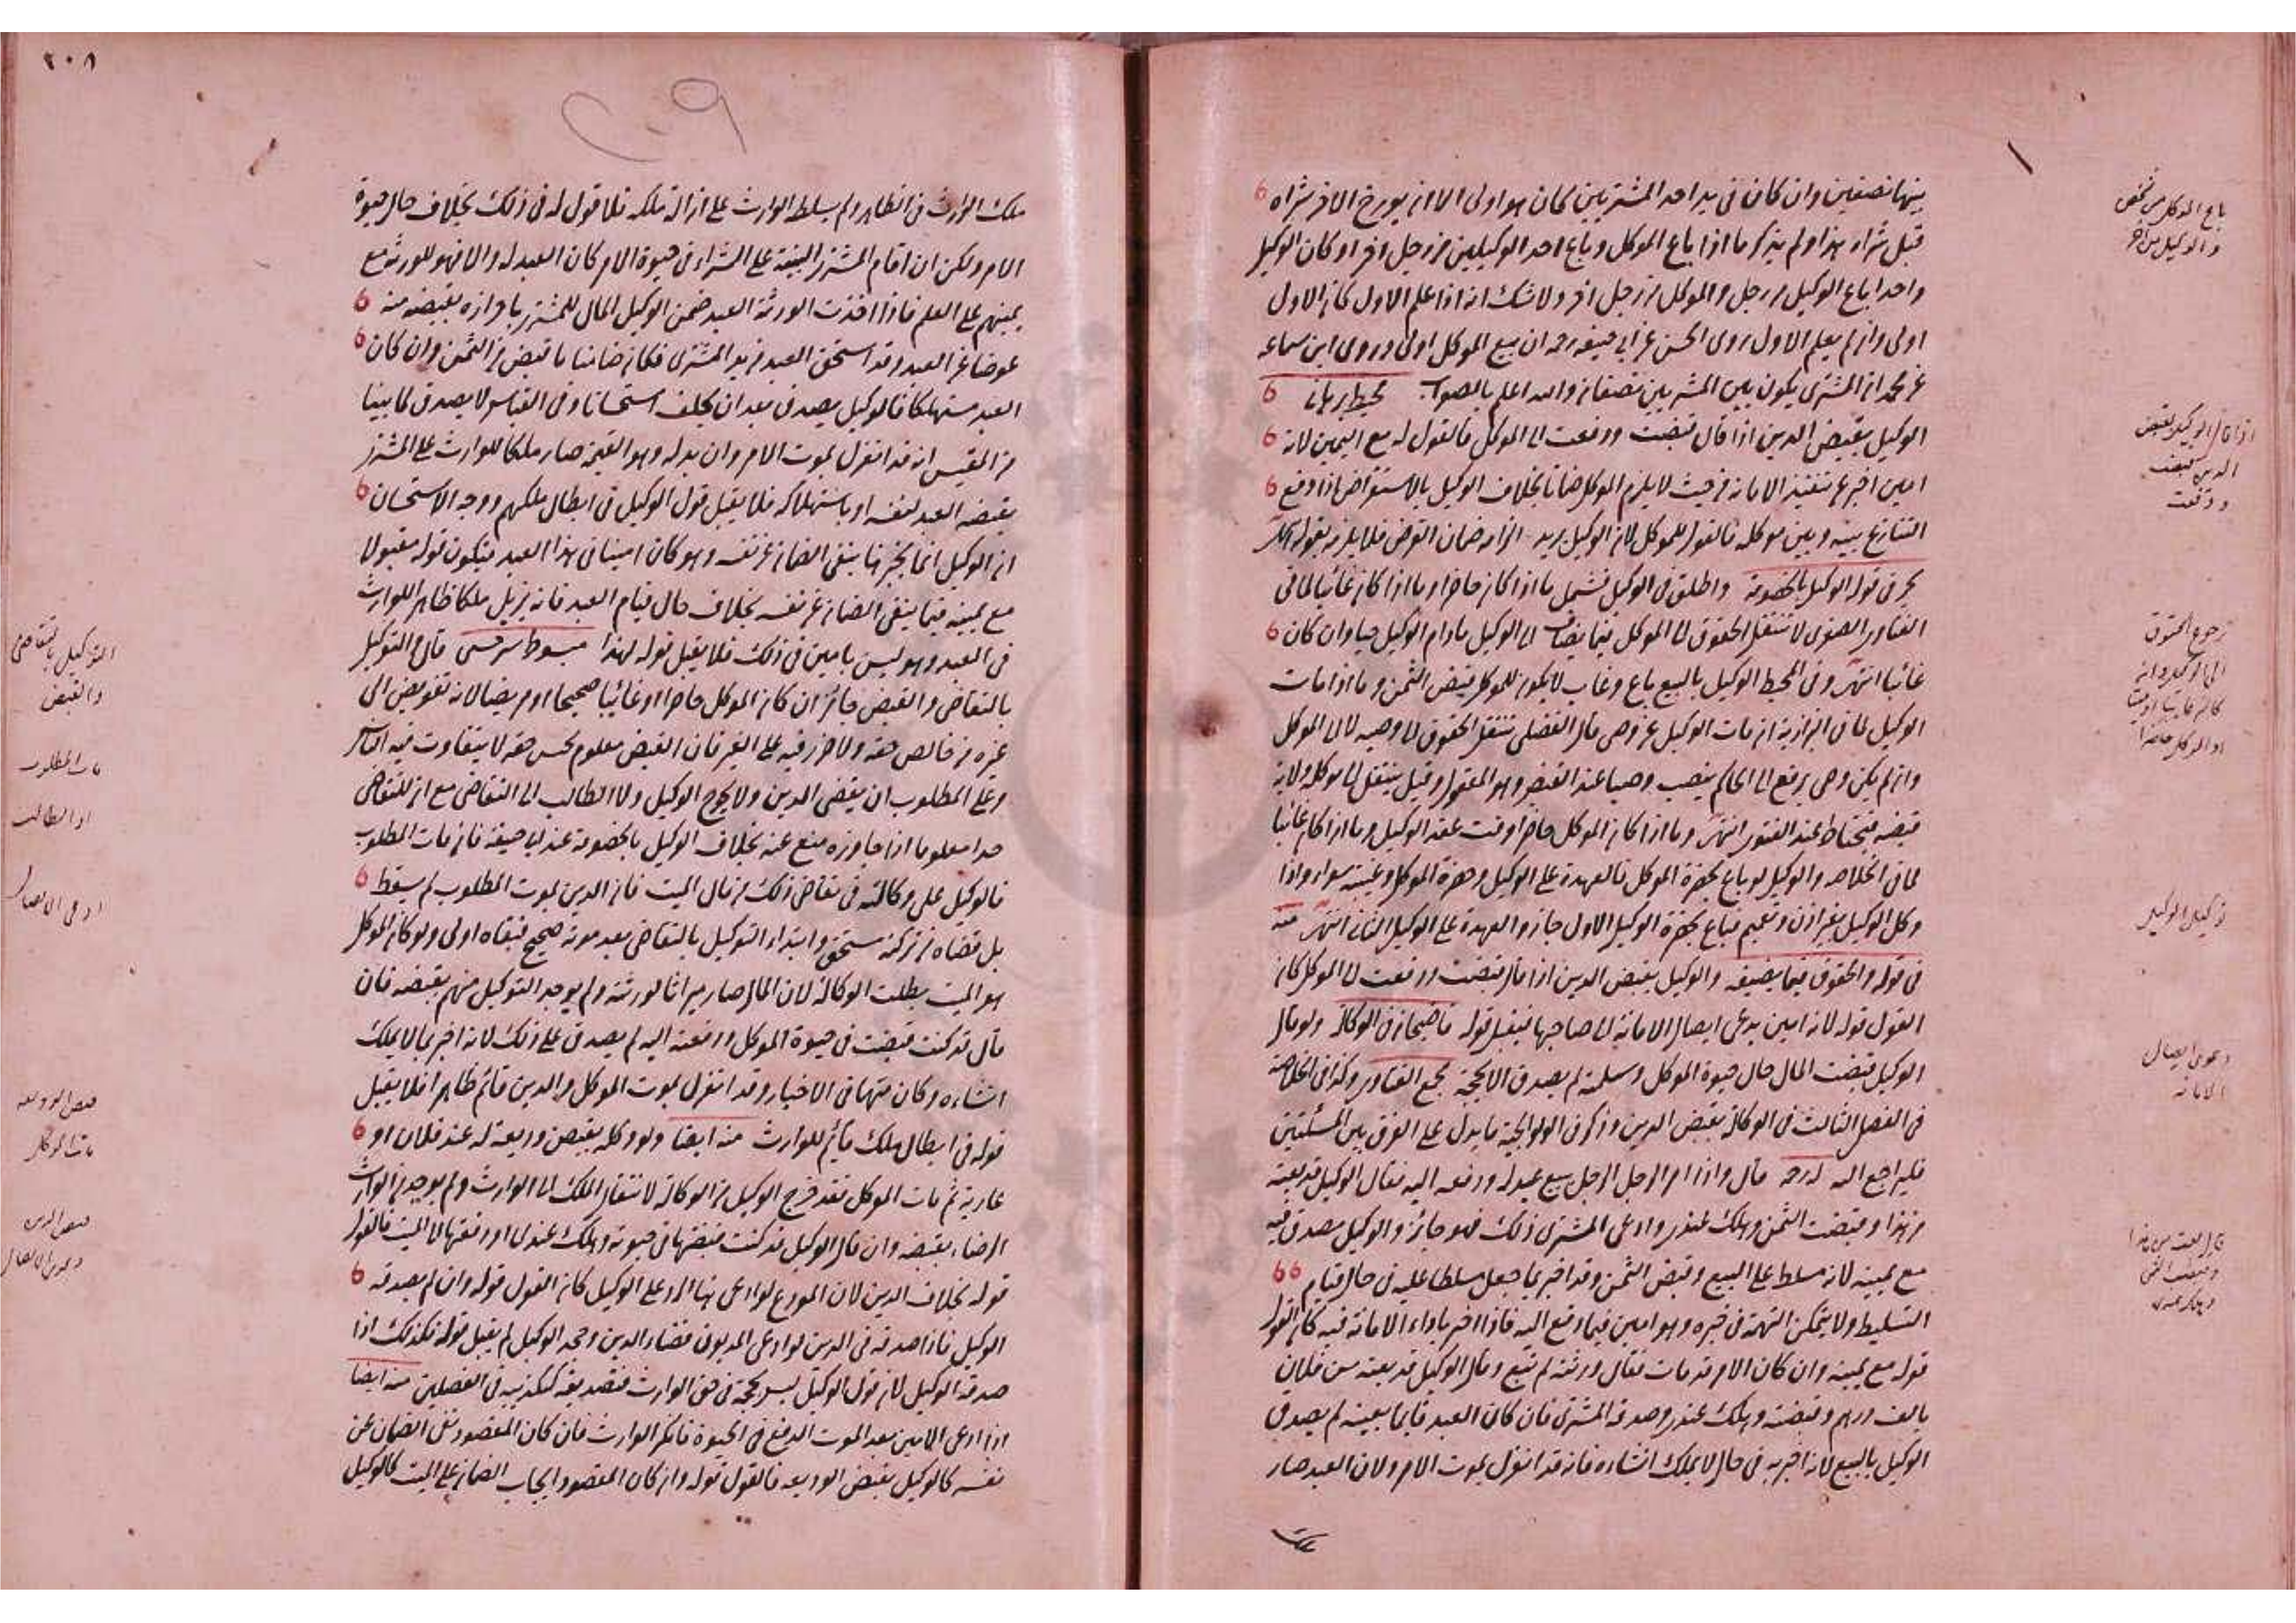 بينهما نصفين وان كان في يد احد المشتريين كان هو اولى الا ان يورخ الاخر شراه
قبل شراء هذا ولم يذكر ما اذا باع الموكل وباع احد الوكيلين من رجل اخر او كان الوكيل
واحدا باع الوكيل من رجل والموكل من رجل اخر ولا شك انه اذا علم الاول كان الاول
اولى وان لم يعلم الاول روى الحسن عن ابي حنيفه رحه ان بيع الموكل اولى وروى ابن سماعه
عن محمد ان المشترى يكون بين المشتريين نصفان والله اعلم بالصواب محيط برهاني
الوكيل بقبض الدين اذا قال قبضت ودفعت الى الموكل فالقول له مع اليمين لانه
امين اخبر عن تنفيذ الامانه من حيث لا يلزم الموكل ضمانا بخلاف الوكيل بالاستقراض اذا وقع
التنازع بينه وبين موكله فالقول للموكل لان الوكيل يريد الزامه ضمان القرض فلا يلزمه بقوله
بحر في قوله الوكيل بالخصومة واطلق في الوكيل فشمل ما اذا كان حاضرا وما اذا كان غائبا لما في
الفتاوى الصغرى لا تنتقل الحقوق الى الموكل فيما يضاف الى الوكيل ما دام الوكيل حيا وان كان
غائبا انتهى وفي المحيط الوكيل بالبيع باع وغاب لا يكون للموكل قبض الثمن وما اذا مات
الوكيل لما في البزازية ان مات الوكيل عن وصي قال الفضلي تنتقل الحقوق الى وصيه لا الى الموكل
وان لم يكن وصي يرفع الى الحاكم ينصب وصيا عند القبض وهو المعقول وقيل ينتقل الى موكله ولاية
قبضه فيحتاط عند الفتوى انتهى وما اذا كان الموكل حاضرا وقت عقد الوكيل وما اذا كان غائبا
لما في الخلاصه والوكيل لو باع بحضرة الموكل فالعهدة على الوكيل وحضرة الموكل وغيبته سواء واذا
وكل الوكيل بغير اذن وتعميم فباع بحضرة الوكيل الاول جاز والعهدة على الوكيل الثاني انتهى منه
في قوله والحقوق فيما يضيفه والوكيل بقبض الدين اذا قال قبضت ودفعت الى الموكل كان
القول قوله لانه امين يدعي ايصال الامانة الى صاحبها فيقبل قوله قاضيخان في الوكالة ولو قال
الوكيل قبضت المال حال حيوة الموكل وسلمته لم يصدق الا بحجة مجمع الفتاوى وكذا في الخلاصة
في الفصل الثالث في الوكالة بقبض الدين وذكر في الولوالجية ما يدل على الفرق بين المسئلتين
فليراجع اليه قال واذا امر الرجل الرجل ببيع عبد له ودفعه اليه فقال الوكيل قد بعته
من هذا وقبضت الثمن وهلك عندي وادعى المشترى ذلك فهو جائز والوكيل مصدق فيه
مع يمينه لانه مسلط على البيع وقبض الثمن وقد اخبر بما جعل مسلطا عليه في حال قيام
التسليط ولا يتمكن التهمة في خبره وهو امين فيما دفع اليه فاذا اخبر باداء الامانة فيه كان القول
قوله مع يمينه وان كان الامر قد مات فقال ورثته لم تبع وقال الوكيل قد بعته من فلان
بالف درهم وقبضته وهلك عندي وصدقه المشترى فان كان العبد قائما بعينه لم يصدق
الوكيل بالبيع لانه اخبر به في حال لا يملك انشاءه فانه قد انعزل بموت الامر ولان العبد صار
باع الموكل من شخص
والوكيل من اخر
اذا قال الوكيل بقبض
الدين قبضت
ودفعت
رجوع الحقوق
توكيل الوكيل
دعوى ايصال
الامانه
قال بعت من هذا
وقبضت الثمن
وهلك عندي
٢٠٨
٢٠٩
ملك الوارث في الظاهر ولم يسلط الوارث على ازالة ملكه فلا قول له في ذلك بخلاف حال حيوة
الامر ولكن ان اقام المشترى البينة على الشراء في حيوة الامر كان العبد له والا فهو للورثة مع
يمينهم على العلم فاذا اخذت الورثة العبد ضمن الوكيل المال للمشترى باقراره بقبضه منه
عوضا عن العبد وقد استحق العبد من يد المشترى فكان ضامنا ما قبض من الثمن وان كان
العبد مستهلكا فالوكيل يصدق بعد ان يحلف استحسانا وفي القياس لا يصدق لما بينا
من المقيس انه قد انعزل بموت الامر وان بدله وهو القيمة صار ملكا للوارث على المشترى
بقبضه العبد لنفسه او باستهلاكه فلا يقبل قول الوكيل في ابطال ملكهم ووجه الاستحسان
ان الوكيل انما يخبر بها ينفي الضمان عن نفسه وهو كان امينا في هذا العبد فيكون قوله مقبولا
مع يمينه فيما ينفي الضمان عن نفسه بخلاف حال قيام العبد فانه يزيل ملكا ظاهرا للوارث
في العبد وهو ليس بامين في ذلك فلا يقبل قوله لهذا مبسوط سرخسي قال والتوكيل
بالتقاضي والقبض جائز ان كان الموكل حاضرا او غائبا صحيحا او مريضا لانه تفويض الى
غيره من خالص حقه ولا ضرر فيه على الغير فان القبض معلوم بحسن حقه لا يتفاوت فيه الناس
وعلى المطلوب ان يقضي الدين ولا يحوج الوكيل ولا الطالب الى التقاضي مع ان للتقاضي
حدا معلوما اذا جاوزه منع عنه بخلاف الوكيل بالخصومة عند ابي حنيفة فان مات المطلوب
فالوكيل على وكالته في تقاضي ذلك من مال الميت فان الدين بموت المطلوب لم يسقط
بل قضاه من تركته مستحق وابتداء التوكيل بالتقاضي بعد موته صحيح فبقاه اولى ولو كان الموكل
هو الميت بطلت الوكالة لان المال صار ميراثا لورثته ولم يوجد التوكيل منهم بقبضه فان
قال قد كنت قبضت في حيوة الموكل ودفعته اليه لم يصدق على ذلك لانه اخبر بما لا يملك
انشاءه وكان متهما في الاخبار وقد انعزل بموت الموكل والدين قائم ظاهرا فلا يقبل
قوله في ابطال ملك قائم للوارث منه ايضا ولو وكله بقبض وديعة له عند فلان او
عارية ثم مات الموكل فقد خرج الوكيل من الوكالة لانتقال الملك الى الوارث ولم يوجد من الوارث
الرضاء بقبضه وان قال الوكيل قد كنت قبضتها في حيوته وهلك عندي او دفعتها الى الميت فالقول
قوله بخلاف الدين لان المودع لو ادعى بها الرد على الوكيل كان القول قوله وان لم يصدقه
الوكيل فاذا صدقه في الدين لو ادعى المديون قضاء الدين وجحد الوكيل لم يقبل قوله فكذلك اذا
صدقه الوكيل لان قول الوكيل ليس بحجة في حق الوارث فتصديقه كتكذيبه في الفصلين منه ايضا
اذا ادعى الامين بعد الموت الدفع في الحيوة فانكر الوارث فان كان المقصود نفي الضمان عن
نفسه كالوكيل بقبض الوديعه فالقول قوله وان كان المقصود ايجاب الضمان على الميت كالوكيل
التوكيل بالتقاضي
والقبض
مات المطلوب
او الطالب
ادعى الايصال
قبض الوديعه
مات الموكل
قبض الدين
دعوى الايصال